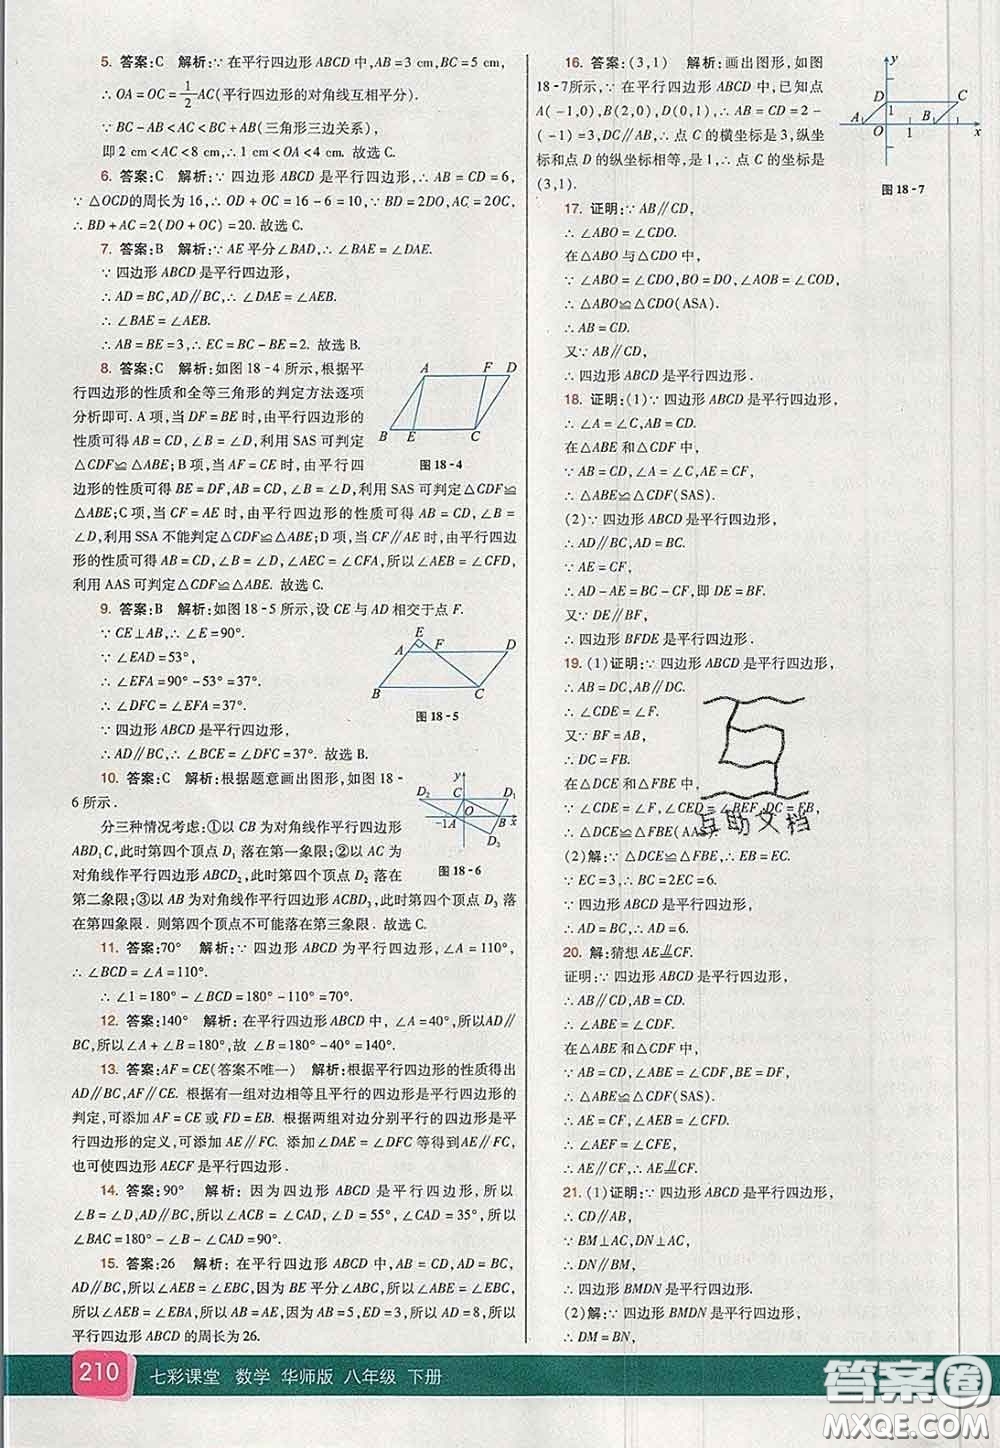 5. 答案:C 解析:∵ 在平行四边形 ABCD 中,AB=3 cm,BC=5 cm,
∴ OA=OC=1/2AC(平行四边形的对角线互相平分).
∵ BC-AB<AC<BC+AB(三角形三边关系),
即 2 cm<AC<8 cm,∴ 1 cm<OA<4 cm. 故选 C.
6. 答案:C 解析:∵ 四边形 ABCD 是平行四边形,∴ AB=CD=6,
∵ △OCD的周长为 16,∴ OD+OC=16-6=10,∵ BD=2DO,AC=2OC,
∴ BD+AC=2(DO+OC)=20. 故选 C.
7. 答案:B 解析:∵ AE 平分∠BAD,∴ ∠BAE=∠DAE.
∵ 四边形 ABCD 是平行四边形,
∴ AD=BC,AD∥BC,∴ ∠DAE=∠AEB.
∴ ∠BAE=∠AEB.
∴ AB=BE=3,∴ EC=BC-BE=2. 故选 B.
8. 答案:C 解析:如图 18-4 所示,根据平
行四边形的性质和全等三角形的判定方法逐项
分析即可. A 项,当 DF=BE 时,由平行四边形的
性质可得 AB=CD,∠B=∠D,利用 SAS 可判定
△CDF≌△ABE;B 项,当 AF=CE 时,由平行四
边形的性质可得 BE=DF,AB=CD,∠B=∠D,利用 SAS 可判定△CDF≌
△ABE;C 项,当 CF=AE 时,由平行四边形的性质可得 AB=CD,∠B=
∠D,利用 SSA 不能判定△CDF≌△ABE;D 项,当 CF∥AE 时,由平行四边形
的性质可得 AB=CD,∠B=∠D,∠AEC=∠CFA,∴ ∠AEB=∠CFD,
利用 AAS 可判定△CDF≌△ABE. 故选 C.
A F D
B E C
图 18-4
9. 答案:B 解析:如图 18-5 所示,设 CE 与 AD 相交于点 F.
∵ CE⊥AB,∴ ∠E=90°.
∵ ∠EAD=53°,
∴ ∠EFA=90°-53°=37°.
∴ ∠DFC=∠EFA=37°.
∵ 四边形 ABCD 是平行四边形,
∴ AD∥BC,∴ ∠BCE=∠DFC=37°. 故选 B.
E
A F D
B C
图 18-5
10. 答案:C 解析:根据题意画出图形,如图 18-
6 所示.
分三种情况考虑:①以 CB 为对角线作平行四边形
ABD1C,此时第四个顶点 D1 落在第一象限;②以 AC 为
对角线作平行四边形 ABCD2,此时第四个顶点 D2 落在
第二象限;③以 AB 为对角线作平行四边形 ACBD3,此时第四个顶点 D3 落
在第四象限. 则第四个顶点不可能落在第三象限. 故选 C.
y
D2 C D1
O
-1A B x
D3
图 18-6
11. 答案:70° 解析:∵ 四边形 ABCD 为平行四边形,∠A=110°,
∴ ∠BCD=∠A=110°.
∴ ∠1=180°-∠BCD=180°-110°=70°.
12. 答案:140° 解析:在平行四边形 ABCD 中,∠A=40°,所以AD∥
BC,所以∠A+∠B=180°,故 ∠B=180°-40°=140°.
13. 答案:AF=CE(答案不唯一) 解析:根据平行四边形的性质得出
AD∥BC,AD=BC. 根据有一组对边相等且平行的四边形是平行四边形的
判定,可添加 AF=CE 或 FD=EB. 根据两组对边分别平行的四边形是平
行四边形的定义,可添加 AE∥FC. 添加 ∠DAE=∠DFC 等得到AE∥FC,
也可使四边形 AECF 是平行四边形.
14. 答案:90° 解析:因为四边形 ABCD 是平行四边形,所以
∠B=∠D,AB∥CD,所以∠BAC=∠ACD,∠D=55°,∠CAD=35°,所以
∠BAC=180°-∠B-∠CAD=90°.
15. 答案:26 解析:在平行四边形 ABCD 中,AB=CD,AD=BC,
AD∥BC,所以∠AEB=∠EBC,因为 BE 平分∠ABC,所以∠ABE=∠EBC,
所以∠AEB=∠EBA,所以 AE=AB=5,ED=3,所以 AD=8,所以
平行四边形 ABCD 的周长为 26.
16. 答案:(3,1) 解析:画出图形,如图
18-7所示,∵ 在平行四边形 ABCD 中,已知点
A(-1,0),B(2,0),D(0,1),∴ AB=CD=2-
(-1)=3,DC∥AB,∴ 点 C 的横坐标是 3,纵坐
标和点 D 的纵坐标相等,是 1,∴ 点 C 的坐标是
(3,1).
y
D C
1
A B
O 1 x
图 18-7
17. 证明:∵ AB∥CD,
∴ ∠ABO=∠CDO.
在△ABO 与△CDO 中,
∵ ∠ABO=∠CDO,BO=DO,∠AOB=∠COD,
∴ △ABO≌△CDO(ASA).
∴ AB=CD.
又∵ AB∥CD,
∴ 四边形 ABCD 是平行四边形.
18. 证明:(1)∵ 四边形 ABCD 是平行四边形,
∴ ∠A=∠C,AB=CD.
在△ABE 和△CDF 中,
∵ AB=CD,∠A=∠C,AE=CF,
∴ △ABE≌△CDF(SAS).
(2)∵ 四边形 ABCD 是平行四边形,
∴ AD∥BC,AD=BC.
∵ AE=CF,
∴ AD-AE=BC-CF,即 DE=BF.
又∵ DE∥BF,
∴ 四边形 BFDE 是平行四边形.
19. (1)证明:∵ 四边形 ABCD 是平行四边形,
∴ AB=DC,AB∥DC.
∴ ∠CDE=∠F.
又∵ BF=AB,
∴ DC=FB.
在△DCE 和△FBE 中,
∵ ∠CDE=∠F,∠CED=∠BEF,DC=FB,
∴ △DCE≌△FBE(AAS).
(2)解:∵ △DCE≌△FBE,∴ EB=EC.
∵ EC=3,∴ BC=2EC=6.
∵ 四边形 ABCD 是平行四边形,
∴ AD=BC,∴ AD=6.
20. 解:猜想 AE∥=CF.
证明:∵ 四边形 ABCD 是平行四边形,
∴ AB∥CD,AB=CD.
∴ ∠ABE=∠CDF.
在△ABE 和△CDF 中,
∵ AB=CD,∠ABE=∠CDF,BE=DF,
∴ △ABE≌△CDF(SAS).
∴ AE=CF,∠AEB=∠CFD.
∴ ∠AEF=∠CFE,
∴ AE∥CF,∴ AE∥=CF.
21. (1)证明:∵ 四边形 ABCD 是平行四边形,
∴ CD∥AB,
∵ BM⊥AC,DN⊥AC,
∴ DN∥BM,
∴ 四边形 BMDN 是平行四边形.
(2)解:∵ 四边形 BMDN 是平行四边形,
∴ DM=BN,
互助文档
210 七彩课堂 数学 华师版 八年级 下册
答案圈
MXQE.COM